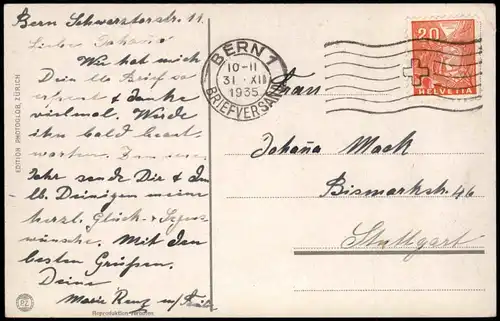 Bern Schwarztorstr. 11.
Liebe Johaña!
Wie hat mich
Dein lb Brief so
erfreut & danke
vielmal. Werde
ihn bald beant-
worten. Zum neuen
Jahr sende Dir & den
lb. Deinigen meine
herzl. Glück- & Segens-
wünsche. Mit den
besten Grüßen.
Deine
Marie
EDITION PHOTOGLOB, ZÜRICH
PZ
BERN 1
10-11
31. XII
1935
BRIEFVERSAND
20
HELVETIA
Frau
Johaña Mack
Bismarkstr. 46
Stuttgart